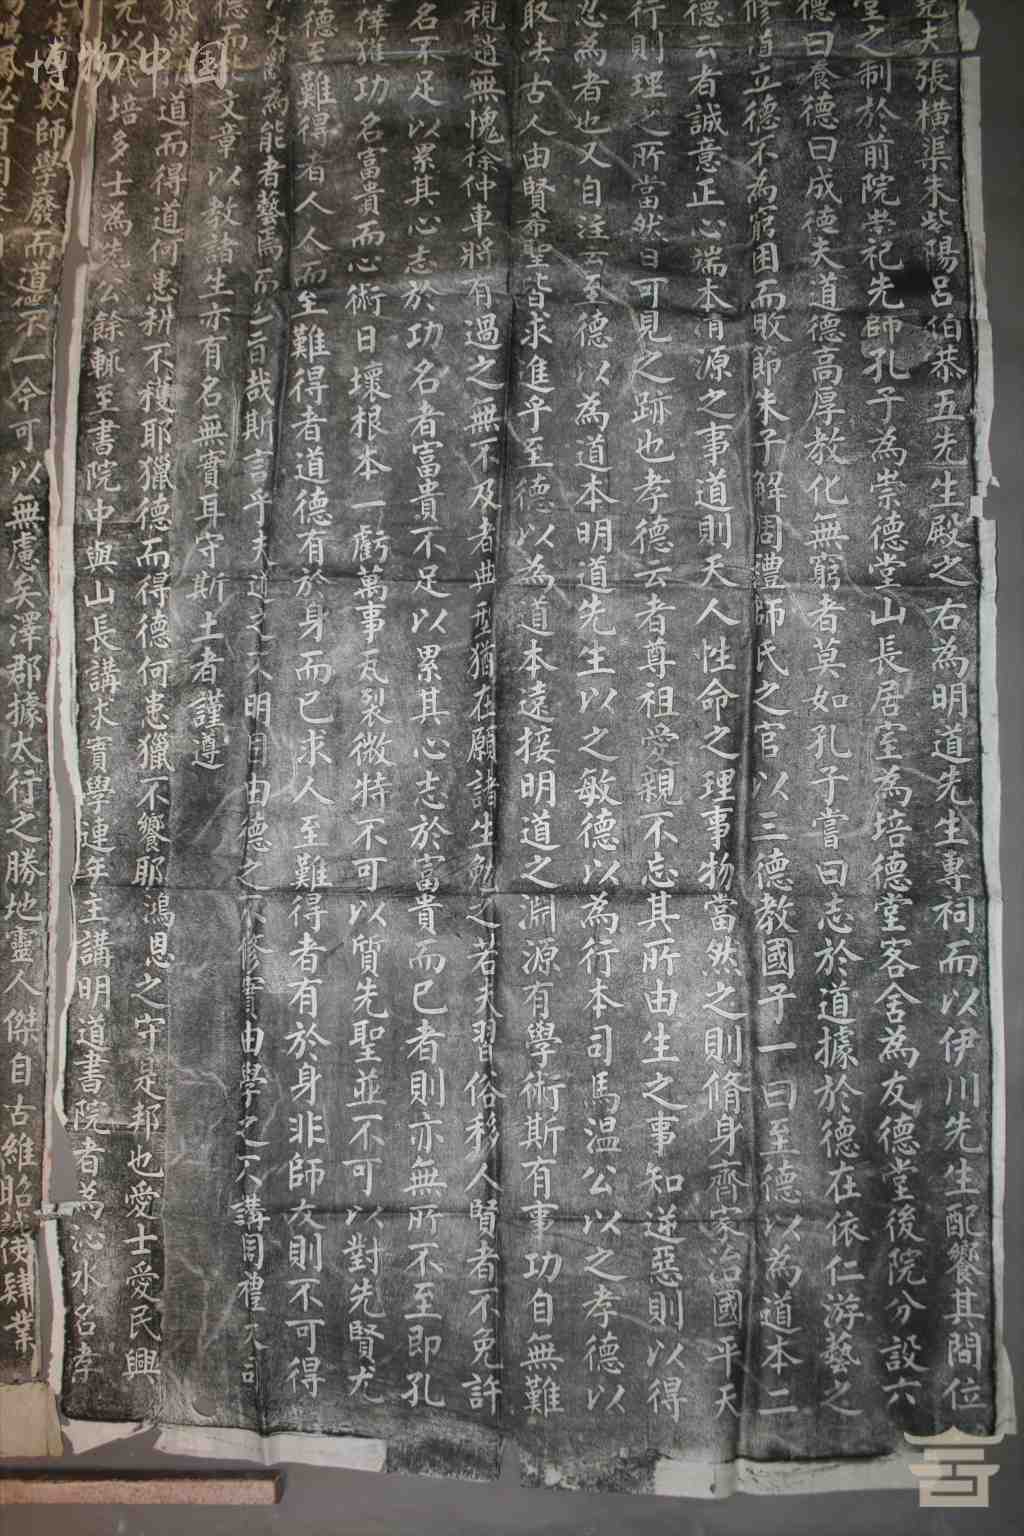 堯夫張橫渠朱紫陽呂伯恭五先生殿之右為明道先生專祠而以伊川先生配饗其間位
堂之制於前院崇祀先師孔子為崇德堂山長居室為培德堂客舍為友德堂後院分設六
德曰養德曰成德夫道德高厚教化無窮者莫如孔子嘗曰志於道據於德在依仁游藝之
修道立德不為窮困而敗節朱子解周禮師氏之官以三德教國子一曰至德以為道本二
德云者誠意正心端本清源之事道則天人性命之理事物當然之則脩身齊家治國平天
行則理之所當然日可見之跡也孝德云者尊祖愛親不忘其所由生之事知逆惡則以得
忍為者也又自注云至德以為道本明道先生以之敏德以為行本司馬溫公以之孝德以
取法古人由賢希聖皆求進乎至德以為道本遠接明道之淵源有學術斯有事功自無難
視道無愧徐仲車將有過之無不及者典型猶在願諸生勉之若夫習俗移人賢者不免許
名不足以累其心志於功名者富貴不足以累其心志於富貴而已者則亦無所不至即孔
倖獲功名富貴而心術日壞根本一虧萬事瓦裂微特不可以質先聖並不可以對先賢尤
德至難得者人人而至難得者道德有於身而已求人至難得者有於身非師友則不可得
文辭為能者藝焉而已旨哉斯言乎夫道之不明固由德之不修實由學之不講周禮大司
德而文章以教諸生亦有名無實耳守斯土者謹遵
獵然道而得道何患耕不穫耶獵德而得德何患獵不饗耶鴻恩之守是邦也愛士愛民興
元以培多士為先公餘輒至書院中與山長講求實學連年主講明道書院者為沁水名孝
師學廢而道德不一今可以無慮矣澤郡據太行之勝地靈人傑自古維昭諸俊肄業
博物中国